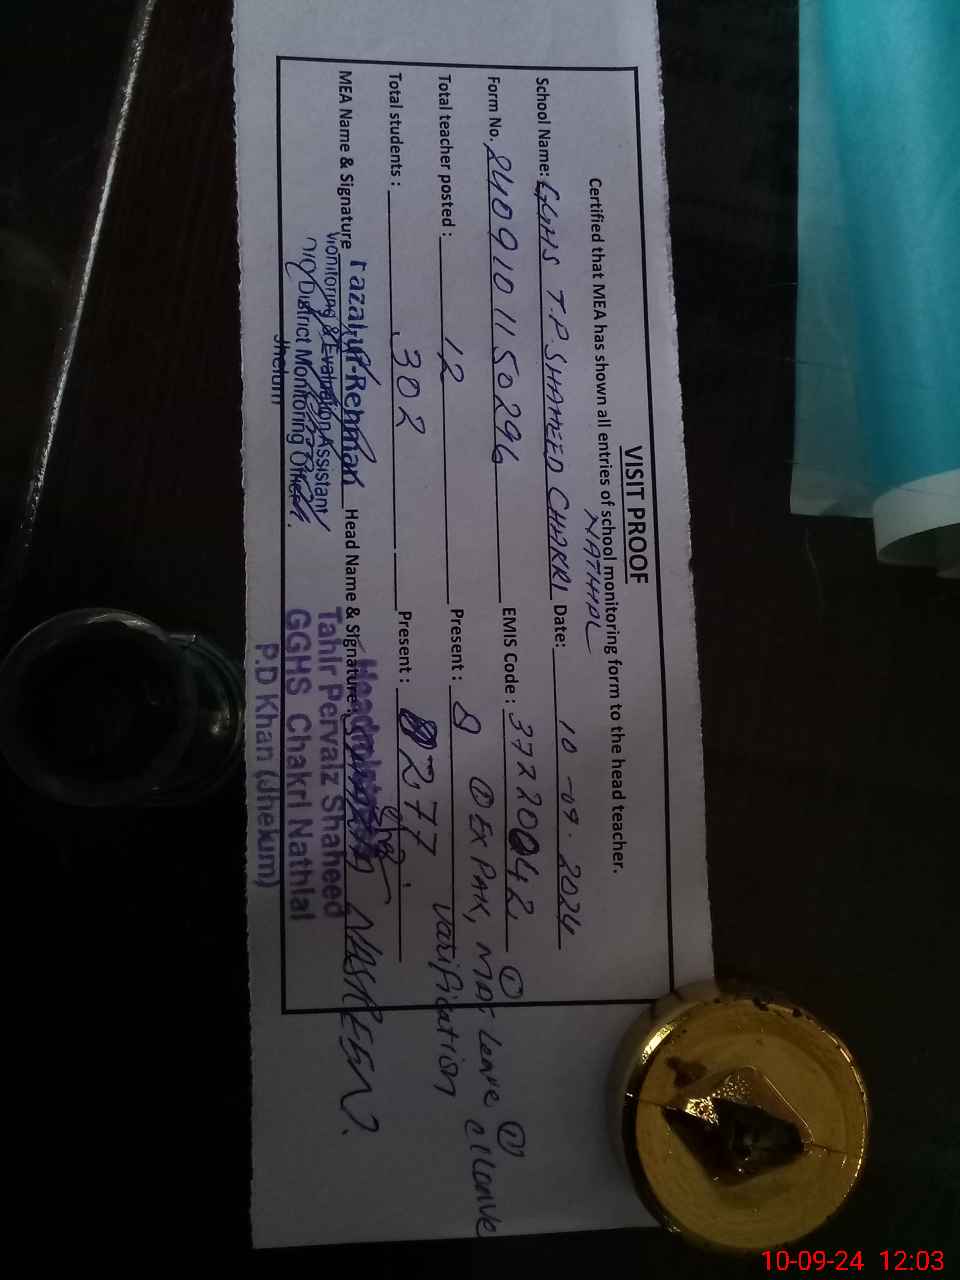 VISIT PROOF
Certified that MEA has shown all entries of school monitoring form to the head teacher.
School Name: GGHS T.P. SHAHEED CHAKRI Date: 10-09-2024
NATHAL
Form No. 2409101150296 EMIS Code: 37220042
Total teacher posted: 12 Present: 8
① EX PAK, MAT Leave ① ① e leave
Total students: 302 Present: 277
Varification
MEA Name & Signature Fazal-ur-Rehman Head Name & Signature
Monitoring & Evaluation Assistant
O/O District Monitoring Officer
Jhelum
Headmistress
NASREEN
Tahir Pervaiz Shaheed
GGHS Chakri Nathlal
P.D Khan (Jhelum)
10-09-24 12:03